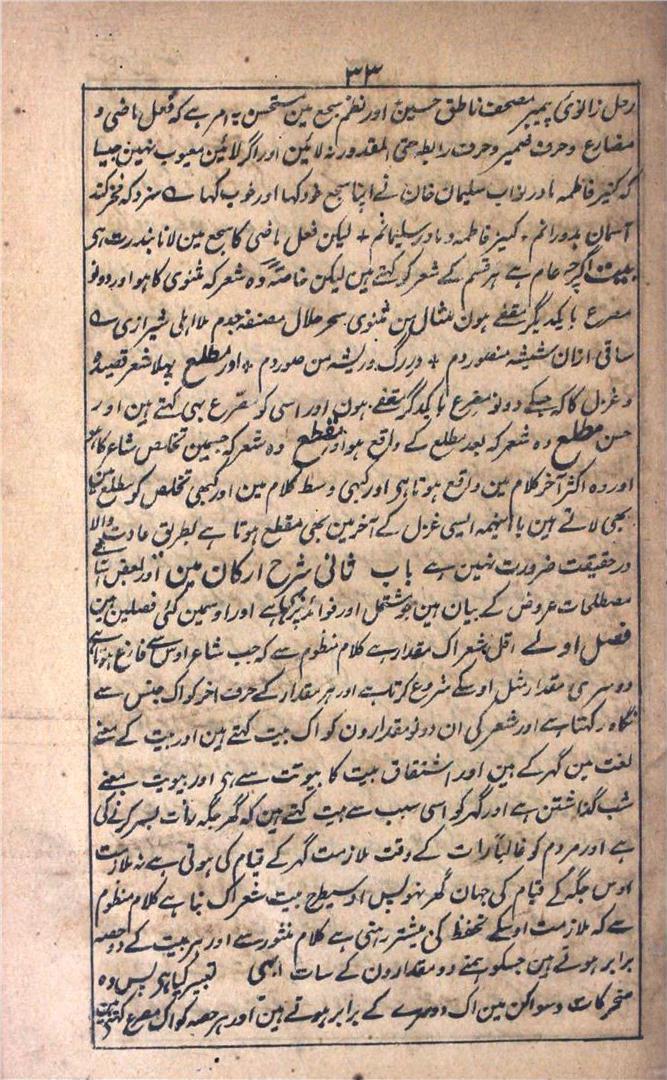 ۳۳
رحل زانوئ پیمبر مصحف ناطق حسین اور نظم سجع مین مستحسن یہ امر ہے کہ فعل ماضی و
مضارع و حرف ضمیر و حرف رابطہ حتی المقدور نہ لائین اور اگر لائین معیوب نہین جیسا
کہ کنیز فاطمہ مادر نواب سلیمان خان نے اپنا سجع خود کہا اور خوب کہا ے سزد کہ فخر کند
آسمان بدورانم + کنیز فاطمہ و مادر سلیمانم + لیکن فعل ماضی کا سجع مین لانا بندرت ہی
بیت اگرچہ عام ہے ہر قسم کے شعر کو کہتے ہین لیکن خاصتہً وہ شعر کہ مثنوی کا ہو اور دونو
مصرع بایکدیگر مقفے ہون مثال من مثنوی سحر حلال مصنفہ جدم ملا اہلی شیرازی ے
ساقی ازان شیشہ منصور دم + در رگ و ریشہ من صور دم + اور مطلع پہلا شعر قصیدہ
و غزل کا کہ جسکے دونو مصرع بایکدگر مقفے ہون اور اسی کو مصرع بھی کہتے ہین اور
حسن مطلع وہ شعر کہ بعد مطلع کے واقع ہو اور مقطع وہ شعر کہ جسمین تخلص شاعر کا ہو
اور وہ اکثر آخر کلام مین واقع ہوتا ہی اور کبھی وسط کلام مین اور کبھی تخلص کو مطلع مین
بھی لاتے ہین با اینہمہ ایسی غزل کے آخر مین بھی مقطع ہوتا ہے بطریق عادت والا
در حقیقت ضرورت نہین ہے باب ثانی شرح ارکان مین اور بعض
مصطلحات عروض کے بیان مین جو مشتمل اور فوائد پر ہے اور اوسمین کئی فصلین ہین
فصل اولے اقل شعر اک مقدار ہے کلام منظوم سے کہ جب شاعر اوس سے فارغ ہوتا ہے
دوسری مقدار مثل اوسکے شروع کرتا ہے اور ہر مقدار کے حرف آخر کو اک جنس سے
نگاہ رکہتا ہے اور شعر کی ان دونو مقدارون کو اک بیت کہتے ہین اور بیت کے معنے
لغت مین گہر کے ہین اور اشتقاق بیت کا بیوتت سے ہی اور بیوتت بمعنے
شب گذاشتن ہے اور گہر کو اسی سبب سے بیت کہتے ہین کہ گھر جگہ رات بسر کرنے کی
ہے اور مردم کو غالباً رات کے وقت ملازمت گہر کے قیام کی ہوتی ہے نہ ملازمت
اوس جگہ کے قیام کی جہان گھر نہو پس اوسیطرح بیت شعر اک بنا ہے کلام منظوم
سے کہ ملازمت اوسکے تحفظ کی بیشتر رہتی ہے کلام منثور سے اور ہر بیت کے دو حصہ
برابر ہوتے ہین جسکو ہمنے دو مقدارون کے سات ابہی تعبیر کیا ہی پس وہ
متحرکات و سواکن مین اک دوسرے کے برابر ہوتے ہین اور ہر حصہ کو اک مصرع کہتے ہین